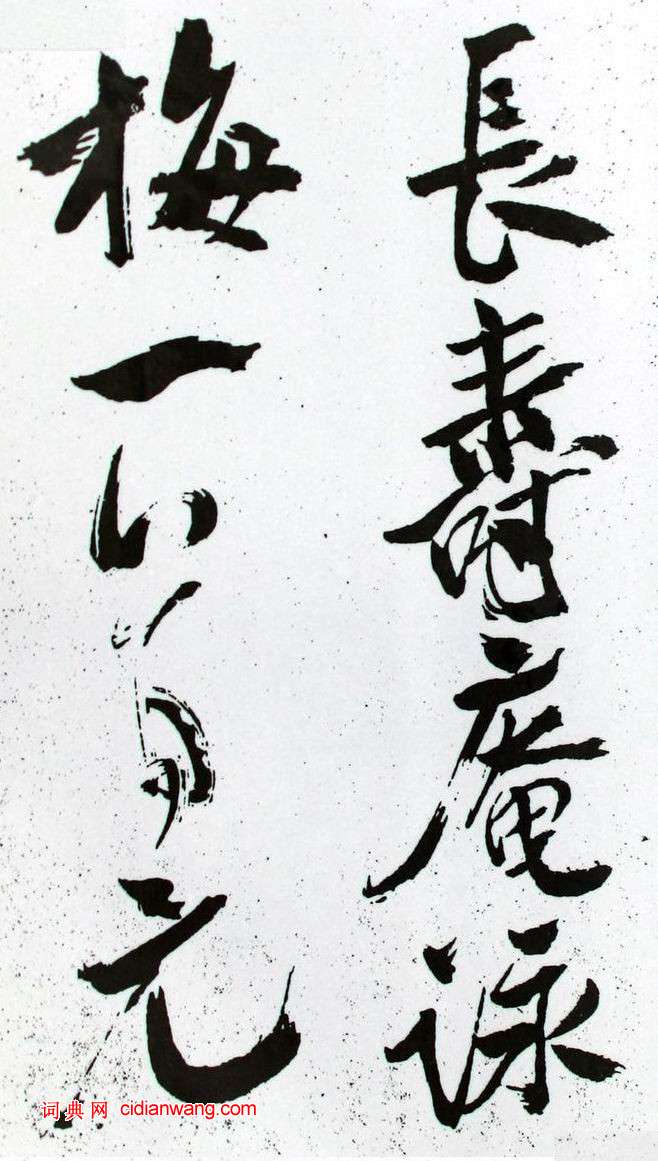 長壽庵詠
梅一元
词典网 cidianwang.com